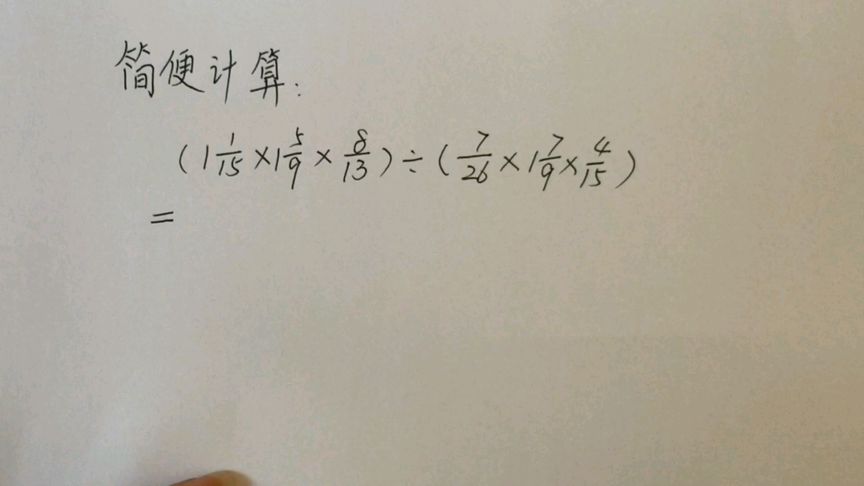 简便计算:
(1 1/15 × 1 5/9 × 8/13) ÷ (7/26 × 1 7/9 × 4/15)
=